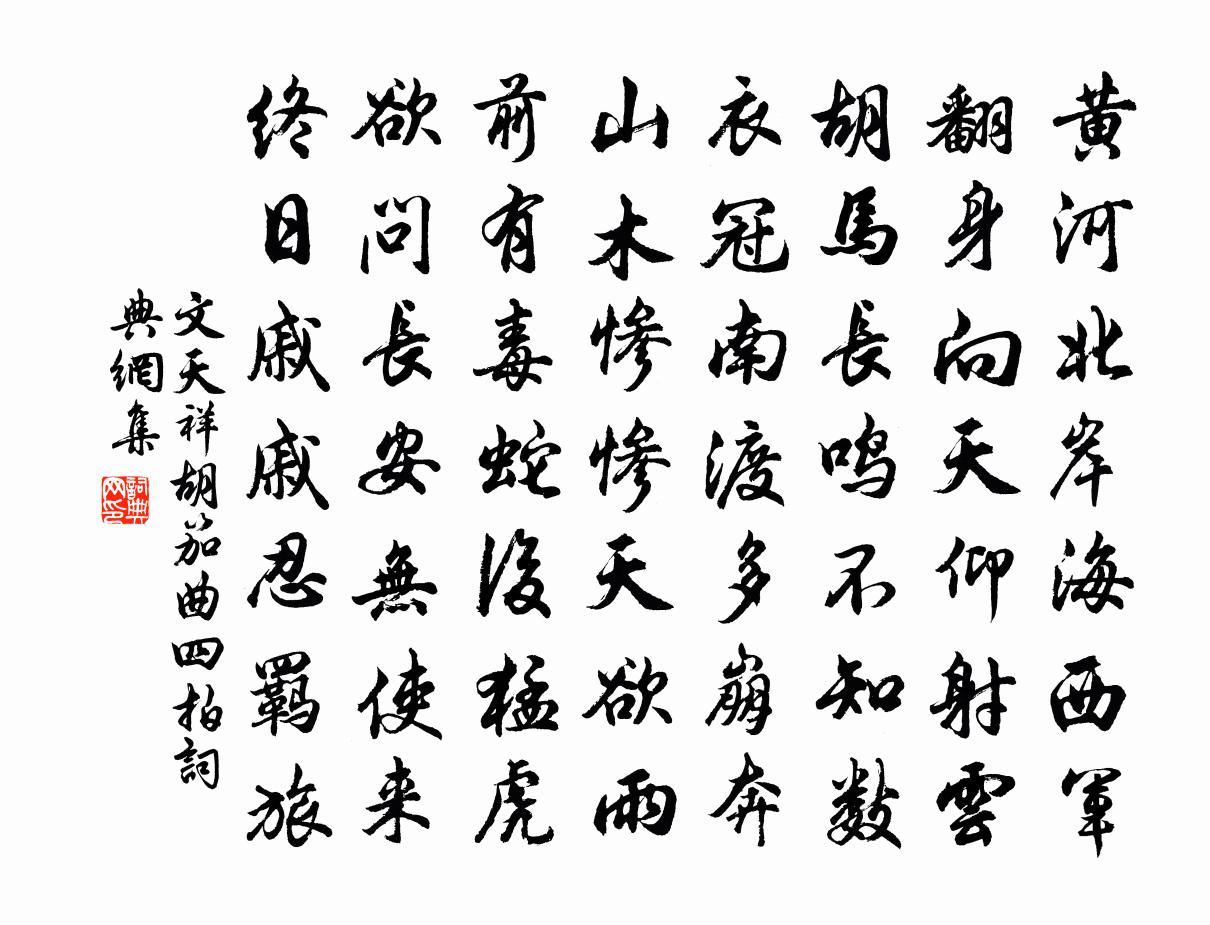 黄河北岸海西軍
翻身向天仰射雲
胡馬長鳴不知數
衣冠南渡多崩奔
山木慘慘天欲雨
前有毒蛇後猛虎
欲問長安無使来
終日戚戚忍羈旅
文天祥胡笳曲四拍詞
典網集
詞典
网印